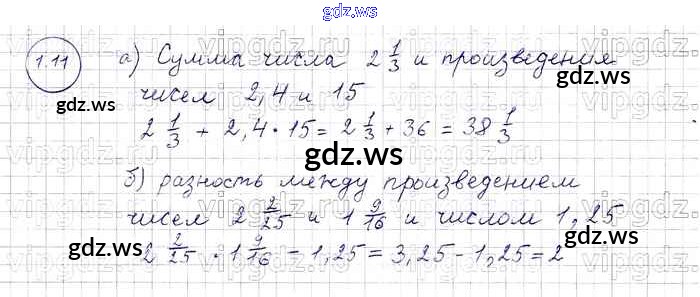 gdz.ws
1.11
а) Сумма числа 2 1/3 и произведения
чисел 2,4 и 15
gdz.ws
2 1/3 + 2,4 · 15 = 2 1/3 + 36 = 38 1/3
gdz.ws
б) разность между произведением
чисел 2 2/25 и 1 9/16 и числом 1,25
gdz.ws
gdz.ws
2 2/25 · 1 9/16 - 1,25 = 3,25 - 1,25 = 2
gdz.ws